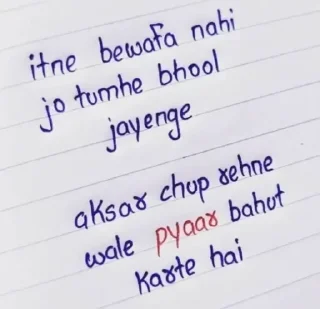 itne bewafa nahi
jo tumhe bhool
jayenge
aksar chup rehne
wale pyaar bahut
karte hai